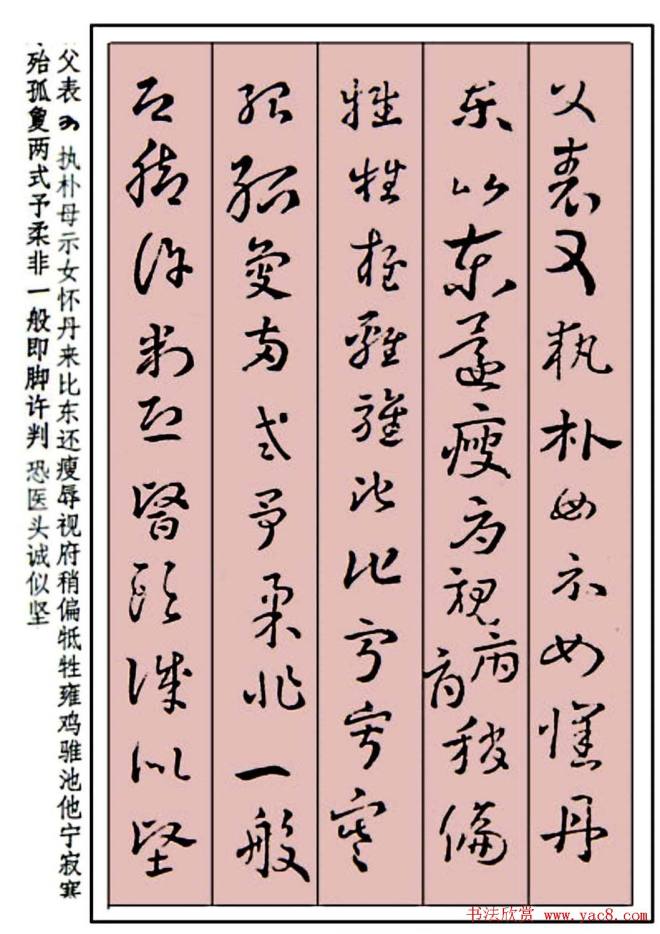 父表又执朴母示女怀丹
来比东还瘦为视病府稍偏
牴牲雍鸡骓池他宁寂寒
殆孤夐两式予柔非一般
即脚许判恐医头诚似坚
父表 执朴母示女怀丹来比东还瘦辱视府稍偏牴牲雍鸡骓池他宁寂寒
殆孤夐两式予柔非一般即脚许判 恐医头诚似坚
书法欣赏 www.yac8.com